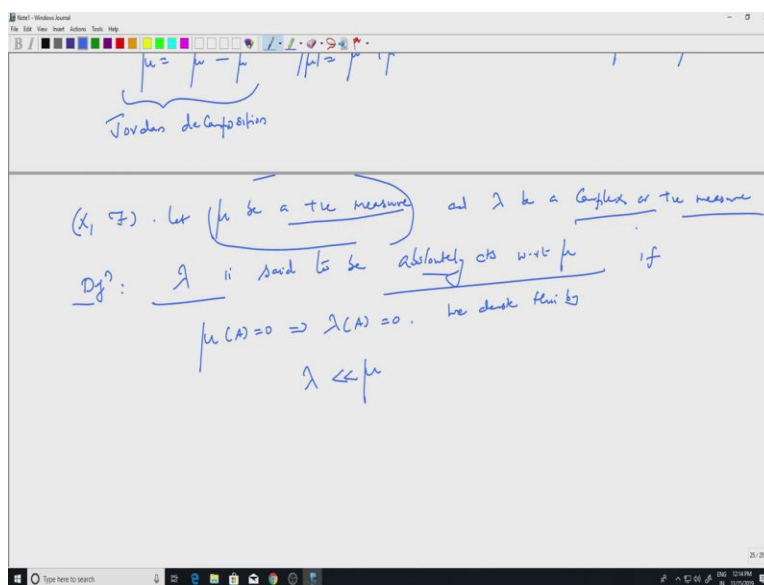 Note1 - Windows Journal
File Edit View Insert Actions Tools Help
μ = μ - μ |μ| = μ + μ
Jordan decomposition
(X, F). Let μ be a +ve measure and λ be a Complex or +ve measure
Defn: λ is said to be absolutely cts w.r.t μ if
μ(A)=0 ⇒ λ(A)=0. We denote this by
λ << μ
25 / 25
Type here to search
ENG 12:14 PM
IN 11/15/2019